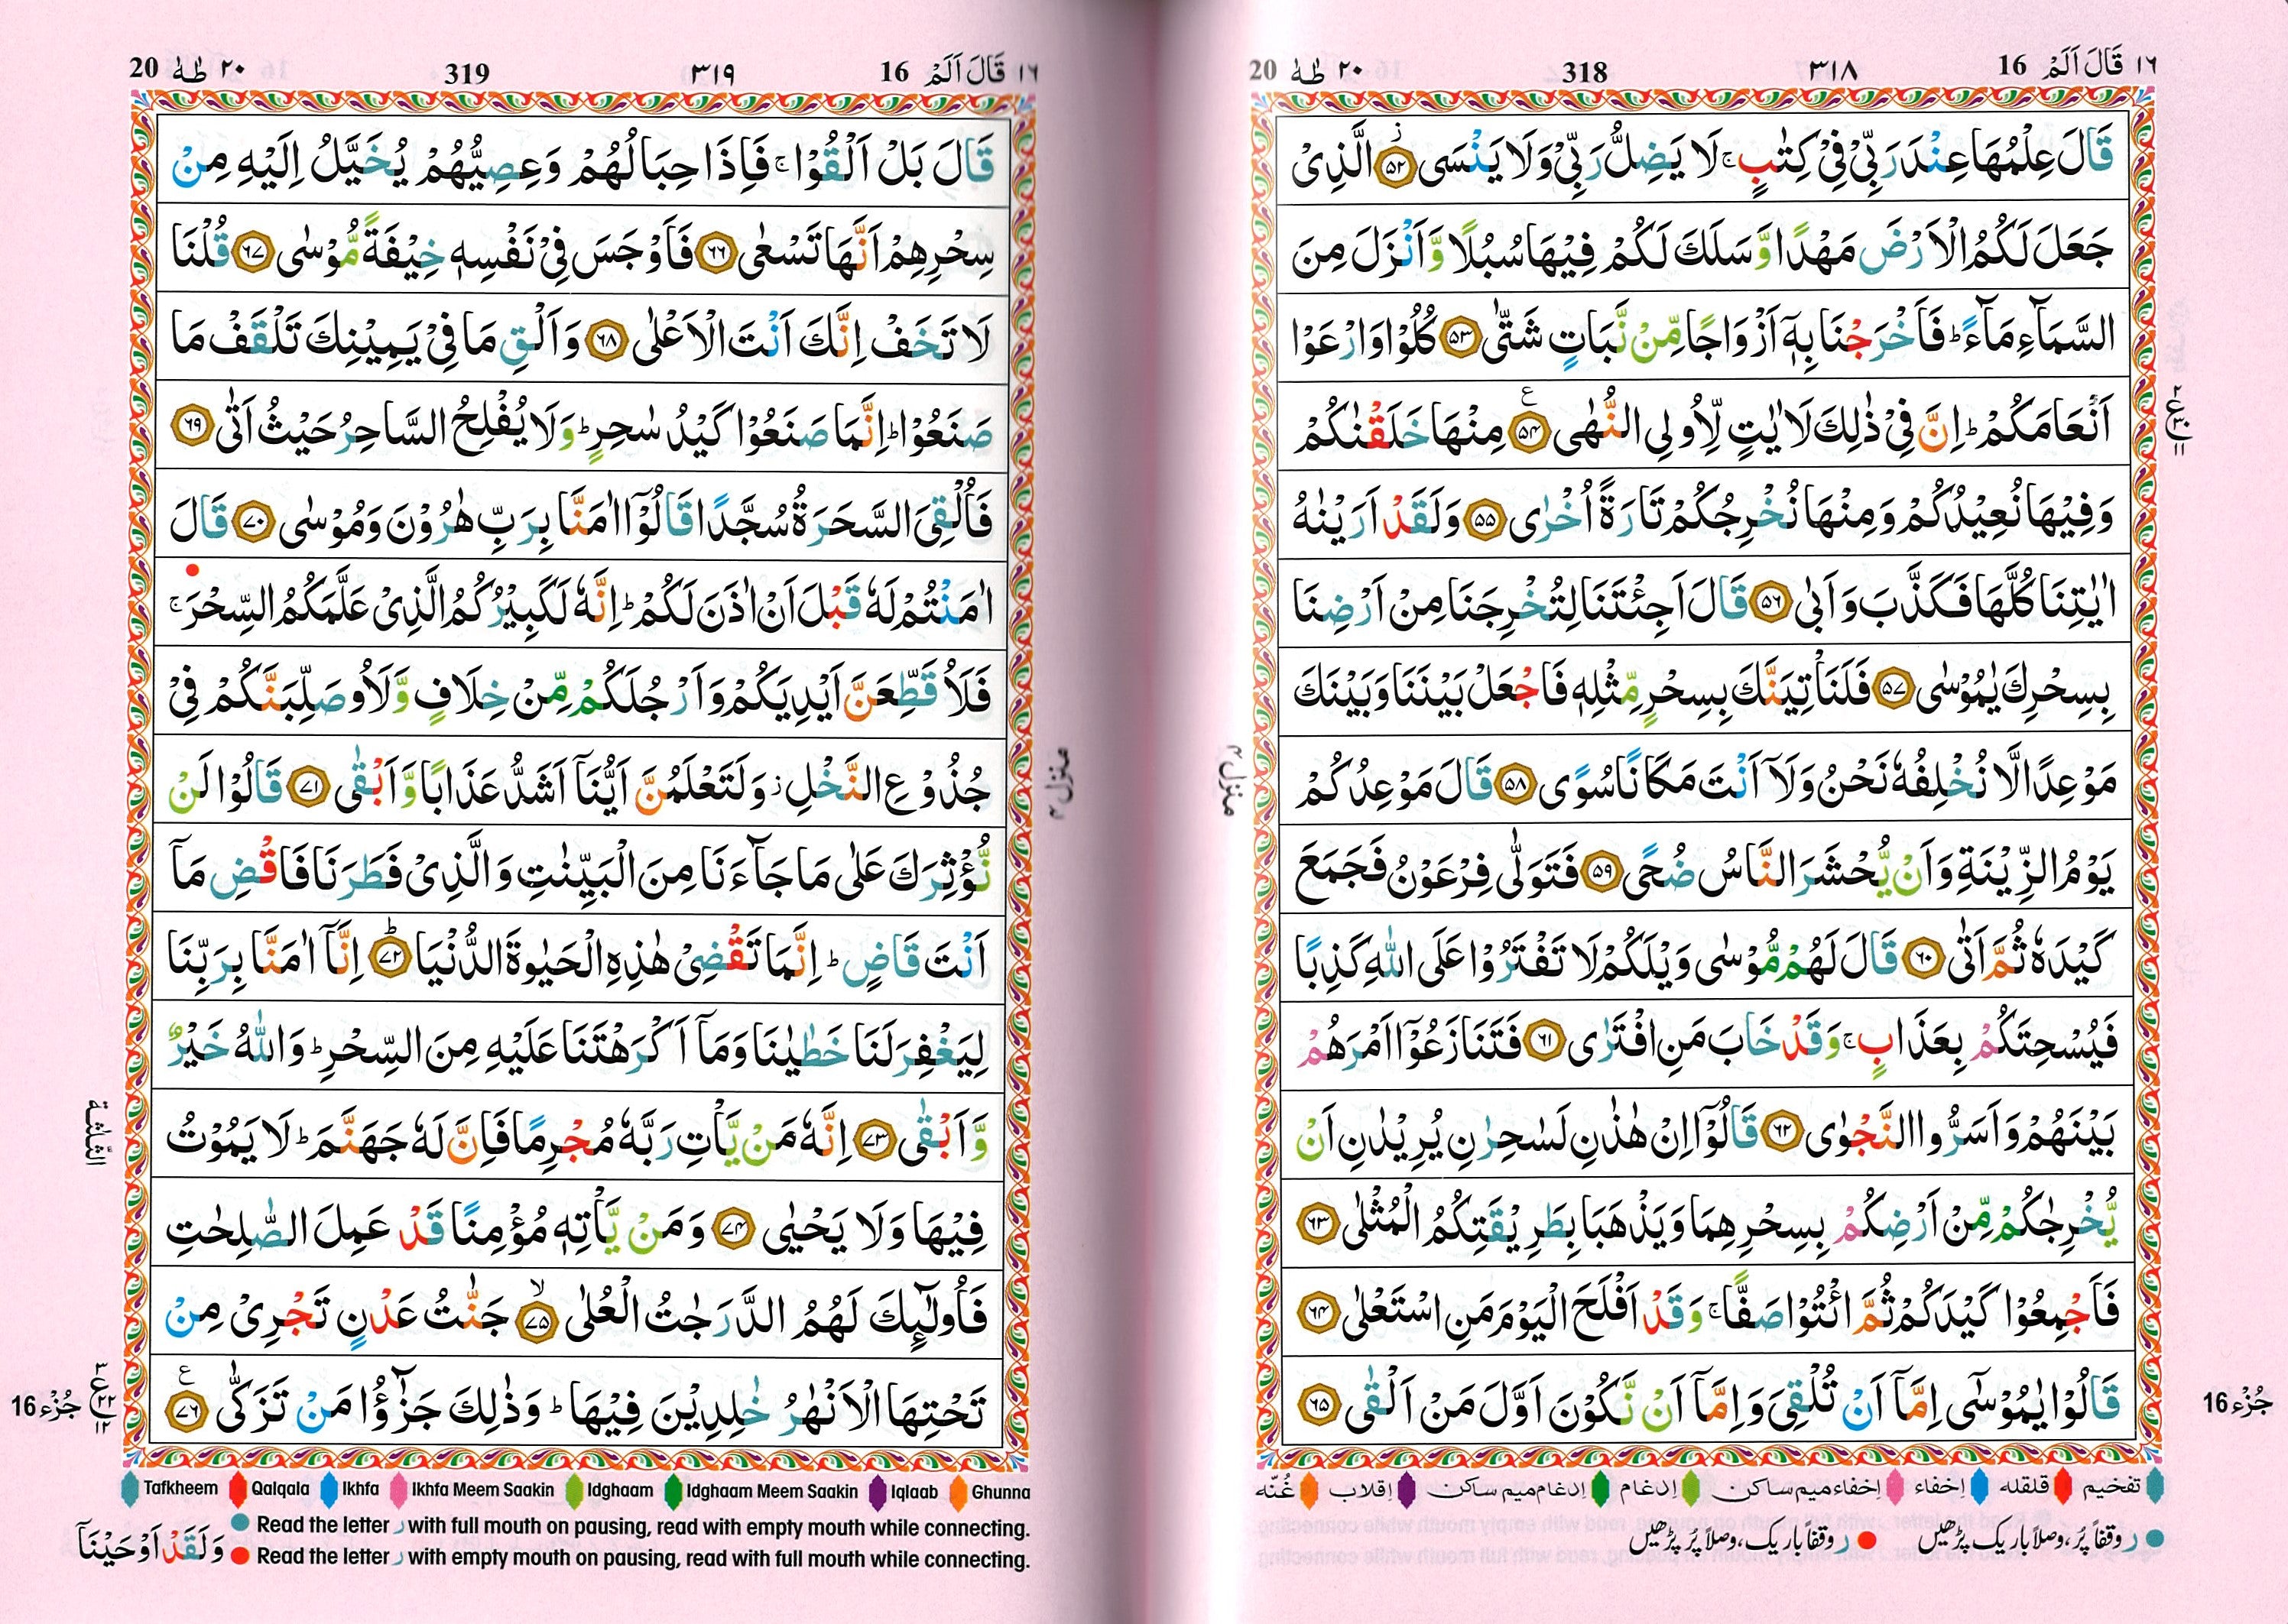 ١٦ قَالَ اَلَمْ 16 ٣١٨ 318 ٢٠ طٰهٰ 20
قَالَ عِلْمُهَا عِنْدَ رَبِّیْ فِیْ كِتٰبٍ ۚ لَا یَضِلُّ رَبِّیْ وَلَا یَنْسَی ۟ؗ ﴿۵۲﴾ الَّذِیْ
جَعَلَ لَكُمُ الْاَرْضَ مَهْدًا وَّسَلَكَ لَكُمْ فِیْهَا سُبُلًا وَّاَنْزَلَ مِنَ
السَّمَآءِ مَآءً ؕ فَاَخْرَجْنَا بِهٖۤ اَزْوَاجًا مِّنْ نَّبَاتٍ شَتّٰی ﴿۵۳﴾ كُلُوْا وَارْعَوْا
اَنْعَامَكُمْ ؕ اِنَّ فِیْ ذٰلِكَ لَاٰیٰتٍ لِّاُولِی النُّهٰی ﴿۵۴﴾ ع مِنْهَا خَلَقْنٰكُمْ
وَفِیْهَا نُعِیْدُكُمْ وَمِنْهَا نُخْرِجُكُمْ تَارَةً اُخْرٰی ﴿۵۵﴾ وَلَقَدْ اَرَیْنٰهُ
اٰیٰتِنَا كُلَّهَا فَكَذَّبَ وَاَبٰی ﴿۵۶﴾ قَالَ اَجِئْتَنَا لِتُخْرِجَنَا مِنْ اَرْضِنَا
بِسِحْرِكَ یٰمُوْسٰی ﴿۵۷﴾ فَلَنَاْتِیَنَّكَ بِسِحْرٍ مِّثْلِهٖ فَاجْعَلْ بَیْنَنَا وَبَیْنَكَ
مَوْعِدًا لَّا نُخْلِفُهٗ نَحْنُ وَلَاۤ اَنْتَ مَكَانًا سُوًی ﴿۵۸﴾ قَالَ مَوْعِدُكُمْ
یَوْمُ الزِّیْنَةِ وَاَنْ یُّحْشَرَ النَّاسُ ضُحًی ﴿۵۹﴾ فَتَوَلّٰی فِرْعَوْنُ فَجَمَعَ
كَیْدَهٗ ثُمَّ اَتٰی ﴿۶۰﴾ قَالَ لَهُمْ مُّوْسٰی وَیْلَكُمْ لَا تَفْتَرُوْا عَلَی اللّٰهِ كَذِبًا
فَیُسْحِتَكُمْ بِعَذَابٍ ۚ وَقَدْ خَابَ مَنِ افْتَرٰی ﴿۶۱﴾ فَتَنَازَعُوْۤا اَمْرَهُمْ
بَیْنَهُمْ وَاَسَرُّوا النَّجْوٰی ﴿۶۲﴾ قَالُوْۤا اِنْ هٰذٰنِ لَسٰحِرٰنِ یُرِیْدٰنِ اَنْ
یُّخْرِجٰكُمْ مِّنْ اَرْضِكُمْ بِسِحْرِهِمَا وَیَذْهَبَا بِطَرِیْقَتِكُمُ الْمُثْلٰی ﴿۶۳﴾
فَاَجْمِعُوْا كَیْدَكُمْ ثُمَّ ائْتُوْا صَفًّا ۚ وَقَدْ اَفْلَحَ الْیَوْمَ مَنِ اسْتَعْلٰی ﴿۶۴﴾
قَالُوْا یٰمُوْسٰۤی اِمَّاۤ اَنْ تُلْقِیَ وَاِمَّاۤ اَنْ نَّكُوْنَ اَوَّلَ مَنْ اَلْقٰی ﴿۶۵﴾
٢ ع ٣٠ ١١
جُزْء 16
منزل ٤
تفخیم قلقله إخفاء إخفاء میم ساکن إدغام إدغام میم ساکن إقلاب غُنّه
ر وقفاً پُر، وصلاً باریک پڑھیں ر وقفاً باریک، وصلاً پُر پڑھیں
١٦ قَالَ اَلَمْ 16 ٣١٩ 319 ٢٠ طٰهٰ 20
قَالَ بَلْ اَلْقُوْا ۚ فَاِذَا حِبَالُهُمْ وَعِصِیُّهُمْ یُخَیَّلُ اِلَیْهِ مِنْ
سِحْرِهِمْ اَنَّهَا تَسْعٰی ﴿۶۶﴾ فَاَوْجَسَ فِیْ نَفْسِهٖ خِیْفَةً مُّوْسٰی ﴿۶۷﴾ قُلْنَا
لَا تَخَفْ اِنَّكَ اَنْتَ الْاَعْلٰی ﴿۶۸﴾ وَاَلْقِ مَا فِیْ یَمِیْنِكَ تَلْقَفْ مَا
صَنَعُوْا ؕ اِنَّمَا صَنَعُوْا كَیْدُ سٰحِرٍ ؕ وَلَا یُفْلِحُ السَّاحِرُ حَیْثُ اَتٰی ﴿۶۹﴾
فَاُلْقِیَ السَّحَرَةُ سُجَّدًا قَالُوْۤا اٰمَنَّا بِرَبِّ هٰرُوْنَ وَمُوْسٰی ﴿۷۰﴾ قَالَ
اٰمَنْتُمْ لَهٗ قَبْلَ اَنْ اٰذَنَ لَكُمْ ؕ اِنَّهٗ لَكَبِیْرُكُمُ الَّذِیْ عَلَّمَكُمُ السِّحْرَ ۚ
فَلَاُقَطِّعَنَّ اَیْدِیَكُمْ وَاَرْجُلَكُمْ مِّنْ خِلَافٍ وَّلَاُوصَلِّبَنَّكُمْ فِیْ
جُذُوْعِ النَّخْلِ ؗ وَلَتَعْلَمُنَّ اَیُّنَاۤ اَشَدُّ عَذَابًا وَّاَبْقٰی ﴿۷۱﴾ قَالُوْا لَنْ
نُّؤْثِرَكَ عَلٰی مَا جَآءَنَا مِنَ الْبَیِّنٰتِ وَالَّذِیْ فَطَرَنَا فَاقْضِ مَاۤ
اَنْتَ قَاضٍ ؕ اِنَّمَا تَقْضِیْ هٰذِهِ الْحَیٰوةَ الدُّنْیَا ؕ ﴿۷۲﴾ اِنَّاۤ اٰمَنَّا بِرَبِّنَا
لِیَغْفِرَ لَنَا خَطٰیٰنَا وَمَاۤ اَكْرَهْتَنَا عَلَیْهِ مِنَ السِّحْرِ ؕ وَاللّٰهُ خَیْرٌ
وَّاَبْقٰی ﴿۷۳﴾ اِنَّهٗ مَنْ یَّاْتِ رَبَّهٗ مُجْرِمًا فَاِنَّ لَهٗ جَهَنَّمَ ؕ لَا یَمُوْتُ
فِیْهَا وَلَا یَحْیٰی ﴿۷۴﴾ وَمَنْ یَّاْتِهٖ مُؤْمِنًا قَدْ عَمِلَ الصّٰلِحٰتِ
فَاُولٰٓئِكَ لَهُمُ الدَّرَجٰتُ الْعُلٰی ۙ ﴿۷۵﴾ جَنّٰتُ عَدْنٍ تَجْرِیْ مِنْ
تَحْتِهَا الْاَنْهٰرُ خٰلِدِیْنَ فِیْهَا ؕ وَذٰلِكَ جَزٰٓؤُا مَنْ تَزَكّٰی ﴿۷۶﴾ ع
منزل ٤
الثلثة
٣ ع ٢٢ ١٢
جُزْء 16
Tafkheem Qalqala Ikhfa Ikhfa Meem Saakin Idghaam Idghaam Meem Saakin Iqlaab Ghunna
Read the letter ر with full mouth on pausing, read with empty mouth while connecting.
Read the letter ر with empty mouth on pausing, read with full mouth while connecting.
وَلَقَدْ اَوْحَیْنَاۤ